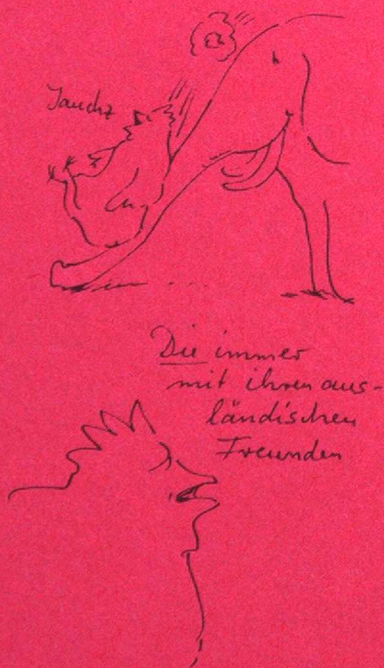 Jauchz
Die immer
mit ihren aus-
ländischen
Freunden